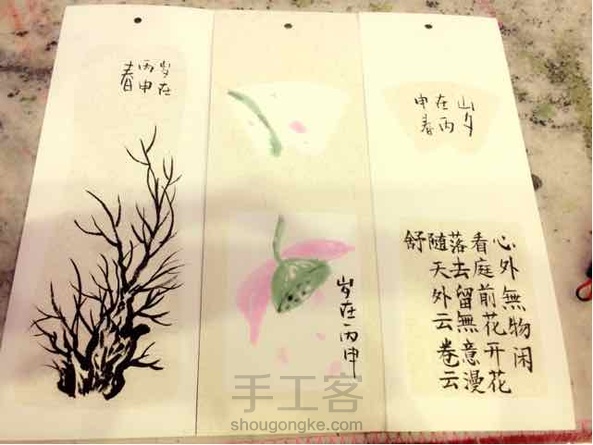 岁在
丙申
春
岁在丙申
岁
在丙
申春
心外無物闲
看庭前花开花
落去留無意漫
随天外云卷云
舒
手工客
shougongke.com